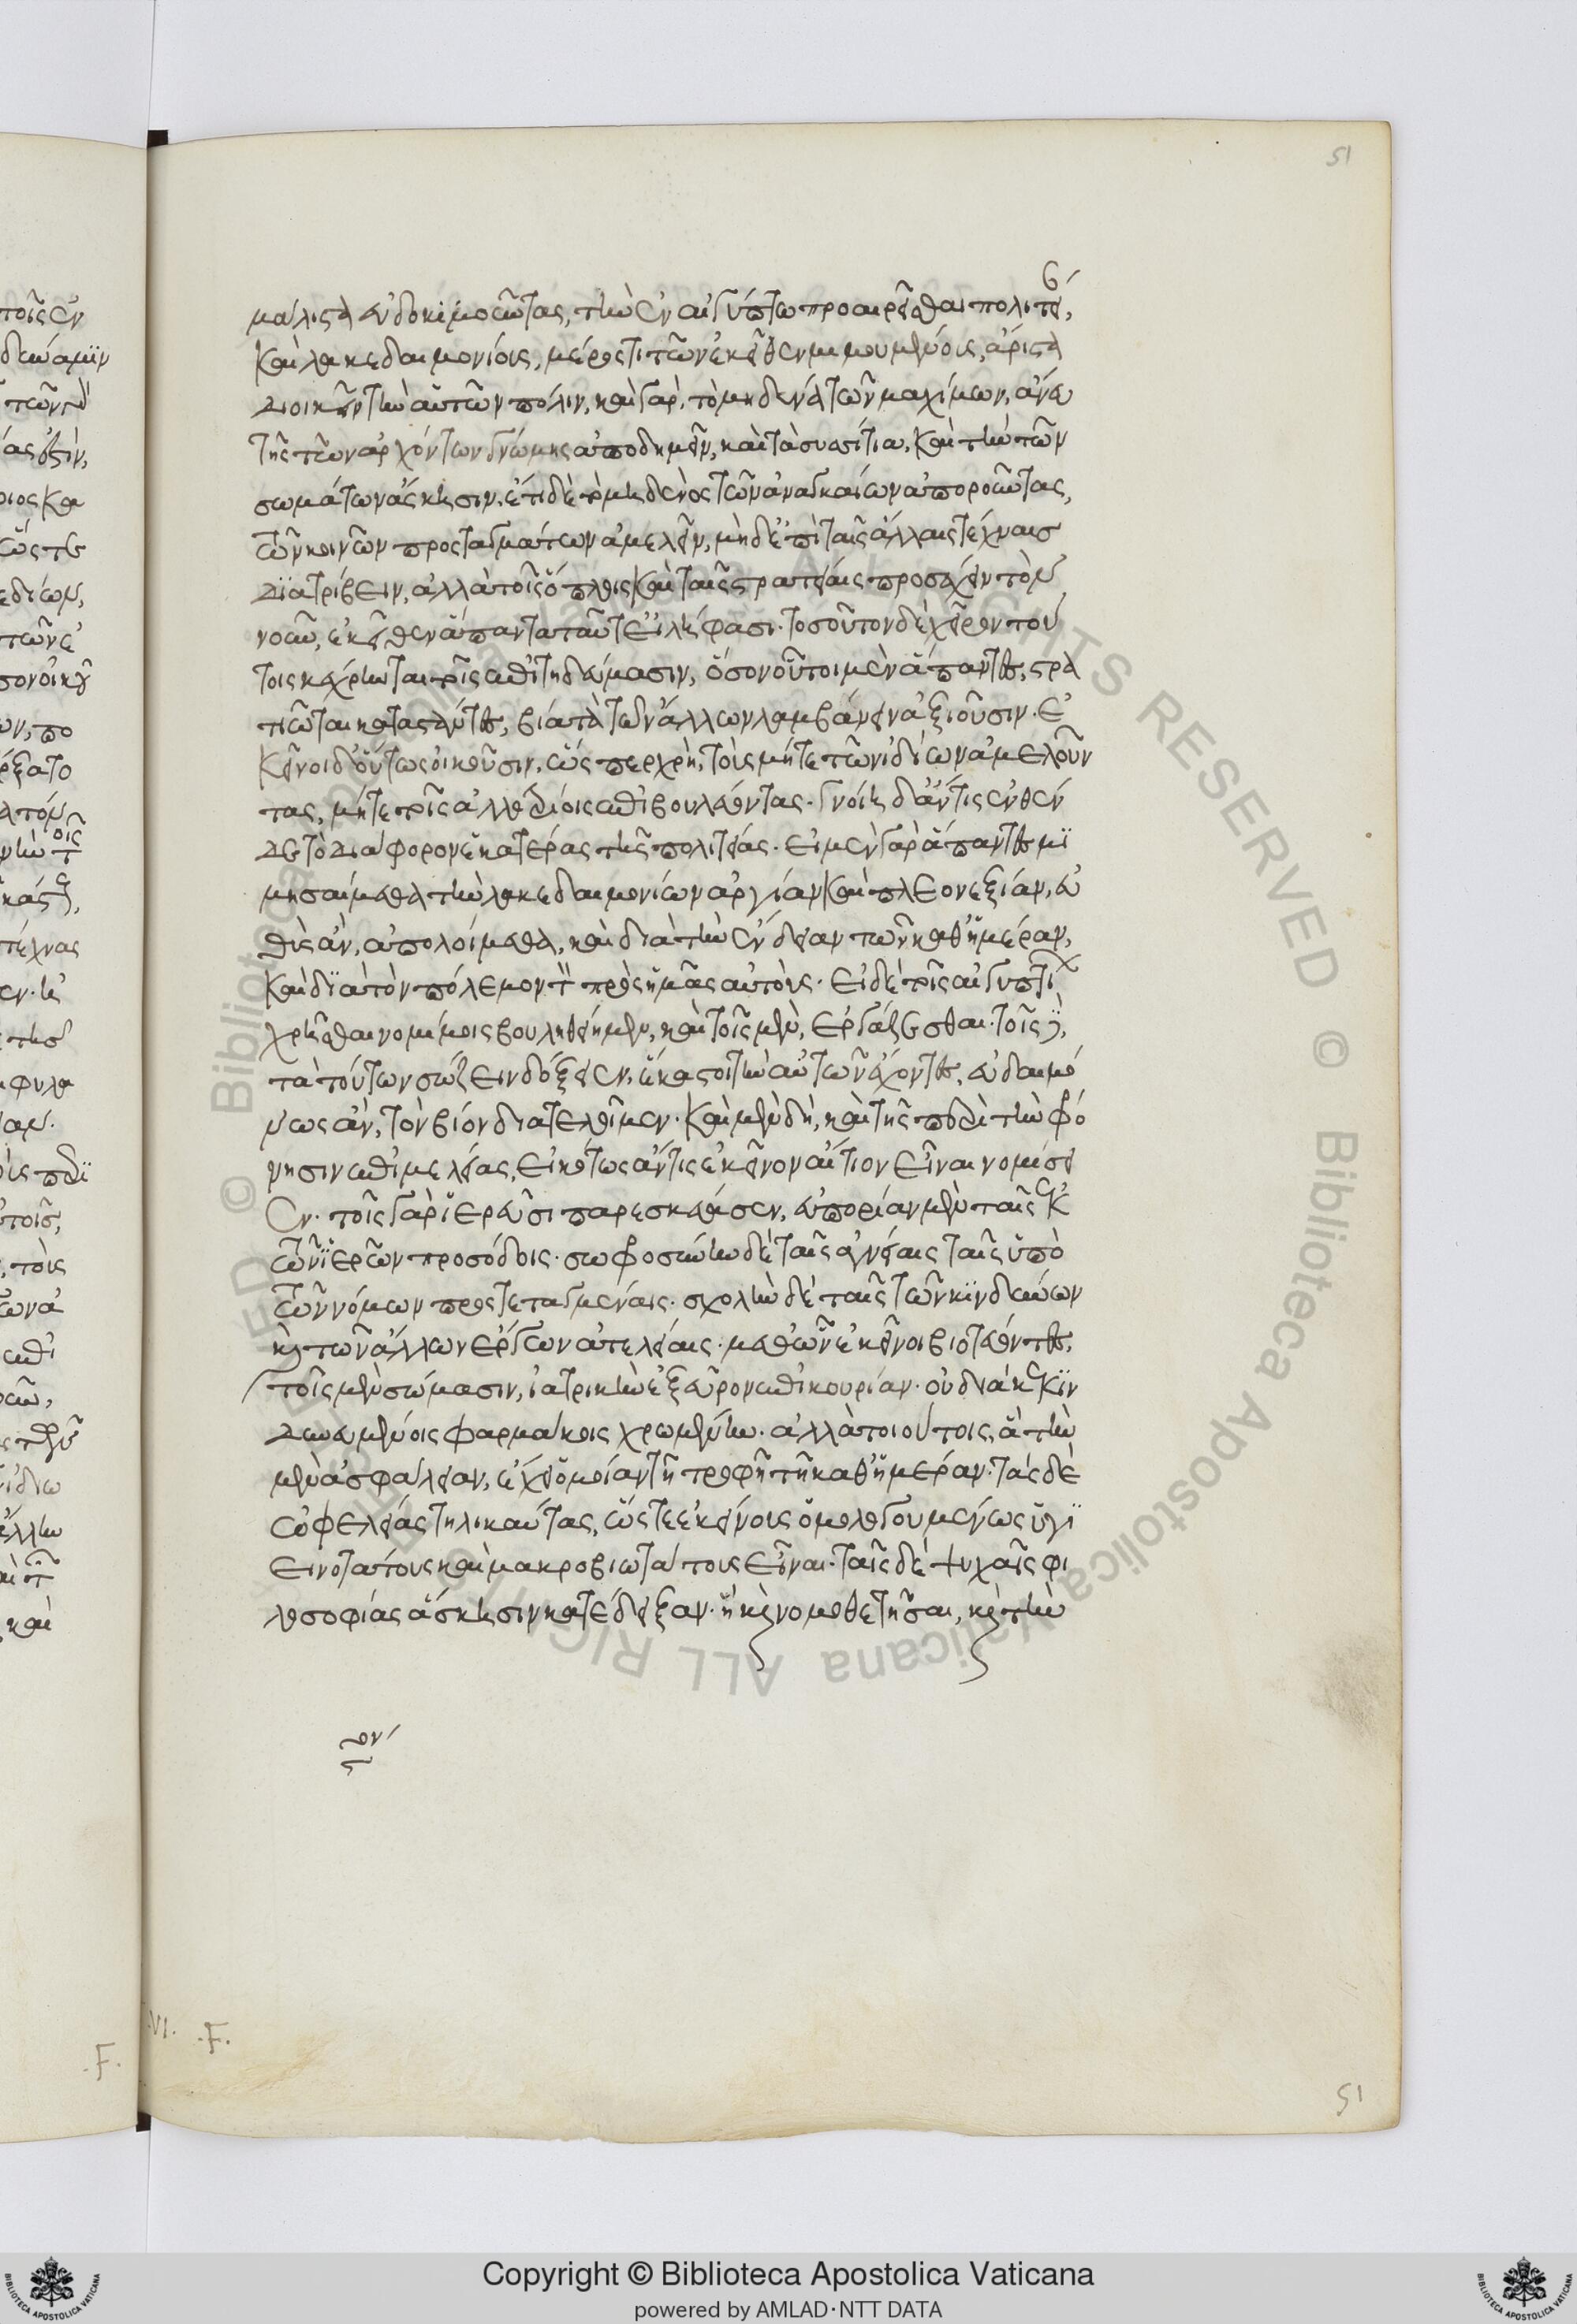 51
μάλιστα εὐδοκιμοῦντας, τὴν ἐν αἰγύπτω προαιρεῖσθαι πολιτεί,
καὶ λακεδαιμονίους, μέρος τι τῶν ἐκεῖθεν μιμουμένους, ἄριστα
διοικεῖν τὴν αὑτῶν πόλιν. καὶ γὰρ, τὸ μηδένα τῶν μαχίμων, ἄνευ
τῆς τῶν ἀρχόντων γνώμης ἀποδημεῖν, καὶ τὰ συσσίτια. καὶ τὴν τῶν
σωμάτων ἄσκησιν. ἔτι δὲ τὸ μηδενὸς τῶν ἀναγκαίων ἀποροῦντας,
τῶν κοινῶν προσταγμάτων ἀμελεῖν, μὴ δ' ἐπὶ ταῖς ἄλλαις τέχναις
διατρίβειν, ἀλλὰ τοῖς ὅπλοις καὶ ταῖς στρατείαις προσέχειν τὸν
νοῦν, ἐκεῖθεν ἅπαντα ταῦτ' εἰλήφασι. τοσοῦτον δὲ χεῖρον τού
τοις κέχρηνται τοῖς ἐπιτηδεύμασιν, ὅσον οὗτοι μὲν ἅπαντες, στρα
τιῶται καταστάντες, βία τὰ τῶν ἄλλων λαμβάνειν ἀξιοῦσιν. ἐ
κεῖνοι δ' οὕτως οἰκοῦσιν, ὥσπερ χρὴ, τοὺς μήτε τῶν ἰδίων ἀμελοῦν
τας, μήτε τοῖς ἀλλοτρίοις ἐπιβουλεύοντας. γνοίη δ' ἄν τις ἐνθέν
δε τὸ διάφορον ἑκατέρας τῆς πολιτείας. εἰ μὲν γὰρ ἅπαντες μι
μησαίμεθα τὴν λακεδαιμονίων ἀργίαν καὶ πλεονεξίαν, εὐ
θὺς ἂν, ἀπολοίμεθα, καὶ διὰ τὴν ἔνδειαν τῶν καθ' ἡμέραν,
καὶ διὰ τὸν πόλεμον τὸν πρὸς ἡμᾶς αὐτούς. εἰ δὲ τοῖς αἰγυπτίων
χρῆσθαι νομίμοις βουληθείημεν, καὶ τοῖς μὲν, ἐργάζεσθαι. τοῖς δὲ,
τὰ τούτων σώζειν δόξειεν, ἕκαστοι τὴν αὑτῶν ἔχοντες, εὐδαιμό
νως ἂν, τὸν βίον διατελοῖμεν. καὶ μὲν δὴ, καὶ τῆς περὶ τὴν φρό
νησιν ἐπιμελείας, εἰκότως ἄν τις ἐκεῖνον αἴτιον εἶναι νομίσει
εν. τοῖς γὰρ ἱερεῦσι παρεσκεύασεν, εὐπορίαν μὲν ταῖς ἐκ
τῶν ἱερῶν προσόδοις. σωφροσύνην δὲ ταῖς ἁγνείαις ταῖς ὑπὸ
τῶν νόμων προστεταγμέναις. σχολὴν δὲ ταῖς τῶν κινδύνων
καὶ τῶν ἄλλων ἔργων ἀτελείαις. μεθ' ὧν ἐκεῖνοι βιοτεύοντες,
τοῖς μὲν σώμασιν, ἰατρικὴν ἐξεῦρον ἐπικουρίαν. οὐ διακεκιν
δυνευμένοις φαρμάκοις χρωμένην. ἀλλὰ τοιούτοις, ἃ τὴν
μὲν ἀσφάλειαν, ἔχει ὁμοίαν τῆ τροφῆ τῆ καθ' ἡμέραν. τὰς δὲ
ὠφελείας τηλικαύτας, ὥστε ἐκείνους ὁμολογουμένως ὑγι
εινοτάτους καὶ μακροβιωτάτους εἶναι. ταῖς δὲ ψυχαῖς φι
λοσοφίας ἄσκησιν κατέδειξαν. ἣ καὶ νομοθετῆσαι, καὶ τὴν
.VI. .F.
.F.
51
© Biblioteca Apostolica Vaticana ALL RIGHTS RESERVED
Copyright © Biblioteca Apostolica Vaticana
powered by AMLAD·NTT DATA
BIBLIOTECA APOSTOLICA VATICANA
BIBLIOTECA APOSTOLICA VATICANA